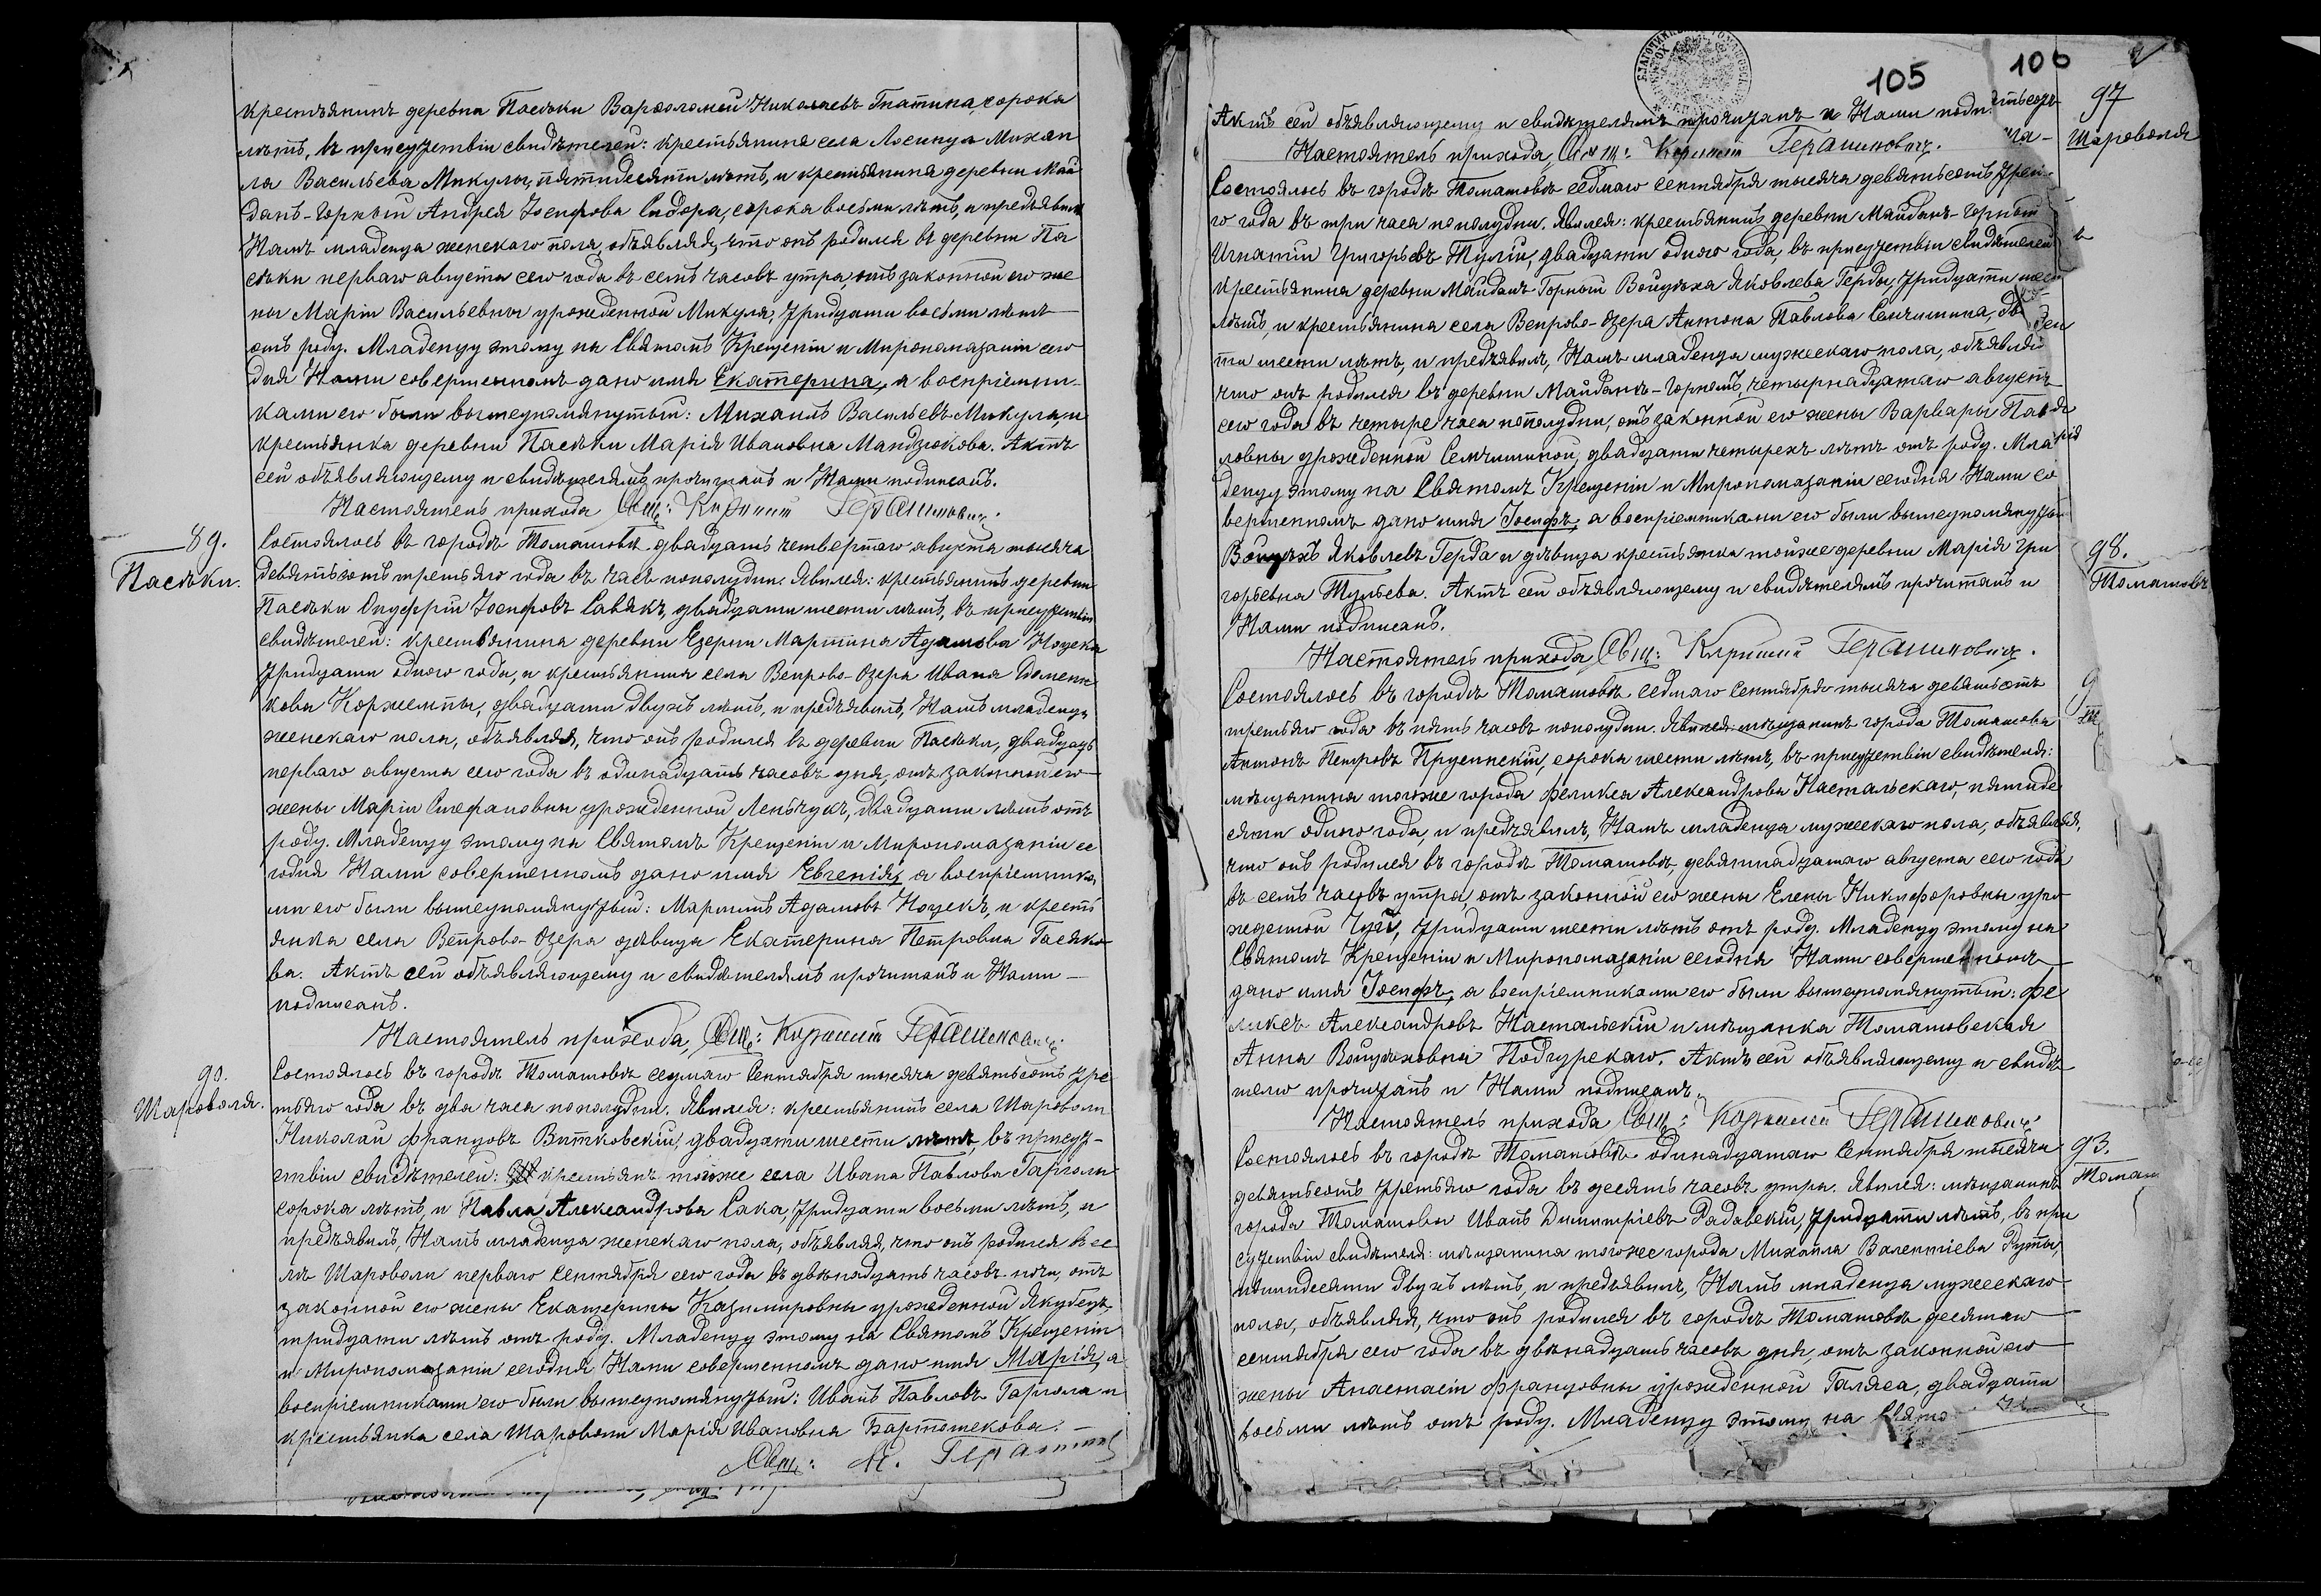 крестьянинъ деревни Пасѣки Варѳоломей Николаевъ Гнатина, сорока
лѣтъ, въ присутствіи свидѣтелей: крестьянина села Лосинца Михаи
ла Васильева Микулы, пятидесяти лѣтъ, и крестьянина деревни Май
данъ-Горный Андрея Іосифова Сидора, сорока восьми лѣтъ, и предъявилъ
Намъ младенца женскаго пола, объявляя, что онъ родился въ деревни Па
сѣки перваго августа сего года въ семь часовъ утра, отъ законной его же
ны Маріи Васильевны урожденной Микула, тридцати восьми лѣтъ
отъ роду. Младенцу этому на Святомъ Крещеніи и Миропомазаніи сего
дня Нами совершенномъ дано имя Екатерина, а воспріемни-
ками его были вышеупомянутый: Михаилъ Васильевъ Микула, и
крестьянка деревни Пасѣки Марія Ивановна Мандзюкова. Актъ
сей объявляющему и свидѣтелямъ прочитанъ и Нами подписанъ.
Настоятель прихода Свщ: Герасимовичъ.
89.
Пасѣки.
Состоялось въ городѣ Томашовѣ двадцать четвертаго августа тысяча
девятьсотъ третьяго года въ часъ пополудни. Явился: крестьянинъ деревни
Пасѣки Онуфрій Іосифовъ Савякъ, двадцати шести лѣтъ, въ присутствіи
свидѣтелей: крестьянина деревни Езерни Мартина Адамова Ноцека
тридцати одного года, и крестьянина села Вепрово-Озера Ивана Домени
кова Коржемпы, двадцати двухъ лѣтъ, и предъявилъ, Намъ младенца
женскаго пола, объявляя, что онъ родился въ деревни Пасѣки, двадцать
перваго августа сего года въ одинадцать часовъ дня, отъ законной его
жены Маріи Стефановны урожденной Леньчукъ, двадцати лѣтъ отъ
роду. Младенцу этому на Святомъ Крещеніи и Миропомазаніи се
годня Нами совершенномъ дано имя Евгенія, а воспріемника
ми его были вышеупомянутый: Мартинъ Адамовъ Ноцекъ, и кресть
янка села Вепрово-Озера дѣвица Екатерина Петровна Гасяко
ва. Актъ сей объявляющему и свидѣтелямъ прочитанъ и Нами
подписанъ.
Настоятель прихода, Свщ: Герасимовичъ.
90.
Шароволя.
Состоялось въ городѣ Томашовѣ седмаго Сентября тысяча девятьсотъ тре
тьяго года въ два часа пополудни. Явился: крестьянинъ села Шароволи
Николай Францовъ Витковскій, двадцати шести лѣтъ, въ присут-
ствіи свидѣтелей: крестьянъ тогоже села Ивана Павлова Гарголи
сорока лѣтъ, и Павла Александрова Сака, тридцати восьми лѣтъ, и
предъявилъ, Намъ младенца женскаго пола, объявляя, что онъ родился въ се
лѣ Шароволи перваго Сентября сего года въ двѣнадцать часовъ ночи, отъ
законной его жены Екатерины Казимировны урожденной Якубецъ
тридцати лѣтъ отъ роду. Младенцу этому на Святомъ Крещеніи
и Миропомазаніи сегодня Нами совершенномъ дано имя Марія, а
воспріемниками его были вышеупомянутый: Иванъ Павловъ Гаргола и
крестьянка села Шароволи Марія Ивановна Бартошекова.
Свщ: К.
105
106
Актъ сей объявляющему и свидѣтелямъ прочитанъ и Нами
Настоятель прихода, Свщ: Герасимовичъ.
97
Шароволя
Состоялось въ городѣ Томашовѣ седмаго сентября тысяча девятьсотъ трет
го года въ три часа пополудни. Явился: крестьянинъ деревни Майданъ-Горный
Игнатій Григорьевъ Тулій, двадцати одного года, въ присутствіи свидѣтелей
крестьянина деревни Майданъ Горный Войцѣха Яковлева Герды, тридцати
лѣтъ, и крестьянина села Вепрово-Озера Антона Павлова
ти шести лѣтъ, и предъявилъ, Намъ младенца мужескаго пола, объявляя
что онъ родился въ деревни Майданѣ-Горномъ, четырнадцатаго августа
сего года въ четыре часа пополудни, отъ законной его жены Варвары Пав
ловны урожденной двадцати четырехъ лѣтъ отъ роду. Мла
денцу этому на Святомъ Крещеніи и Миропомазаніи сегодня Нами со
вершенномъ дано имя Іосифъ, а воспріемниками его были вышеупомянутый
Войцѣхъ Яковлевъ Герда и дѣвица крестьянка тойже деревни Марія Гри
горьевна Тульева. Актъ сей объявляющему и свидѣтелямъ прочитанъ и
Нами подписанъ.
Настоятель прихода, Свщ: Герасимовичъ.
98.
Томашовъ
Состоялось въ городѣ Томашовѣ седмаго Сентября тысяча девятьсотъ
третьяго года въ пять часовъ пополудни. Явился мѣщанинъ города Томашова
Антонъ Петровъ Пруснскій, сорока шести лѣтъ, въ присутствіи свидѣтеля:
мѣщанина тогоже города Феликса Александрова Настальскаго, пятиде
сяти одного года, и предъявилъ, Намъ младенца мужескаго пола, объявляя,
что онъ родился въ городѣ Томашовѣ, девятнадцатаго августа сего года
въ семь часовъ утра, отъ законной его жены Елены Никифоровны уро
жденной тридцати шести лѣтъ отъ роду. Младенцу этому на
Святомъ Крещеніи и Миропомазаніи сегодня Нами совершенномъ
дано имя Іосифъ, а воспріемниками его были вышеупомянутый: Фе
ликсъ Александровъ Настальскій и мѣщанка Томашовская
Анна Войцѣховна Подгурская. Актъ сей объявляющему и свидѣ
телю прочитанъ и Нами подписанъ.
Настоятель прихода Свщ: Герасимовичъ
93.
Томаш
Состоялось въ городѣ Томашовѣ одинадцатаго Сентября тысяча
девятьсотъ третьяго года въ десять часовъ утра. Явился: мѣщанинъ
города Томашова Иванъ Димитріевъ Радавскій, тридцати лѣтъ, въ при
сутствіи свидѣтеля: мѣщанина тогоже города Михаила Валентіева Руты,
двухъ лѣтъ, и предъявилъ, Намъ младенца мужескаго
пола, объявляя, что онъ родился въ городѣ Томашовѣ десятаго
сентября сего года въ двѣнадцать часовъ дня, отъ законной его
жены Анастасіи Францовны урожденной Галяса, двадцати
восьми лѣтъ отъ роду. Младенцу этому на Свято